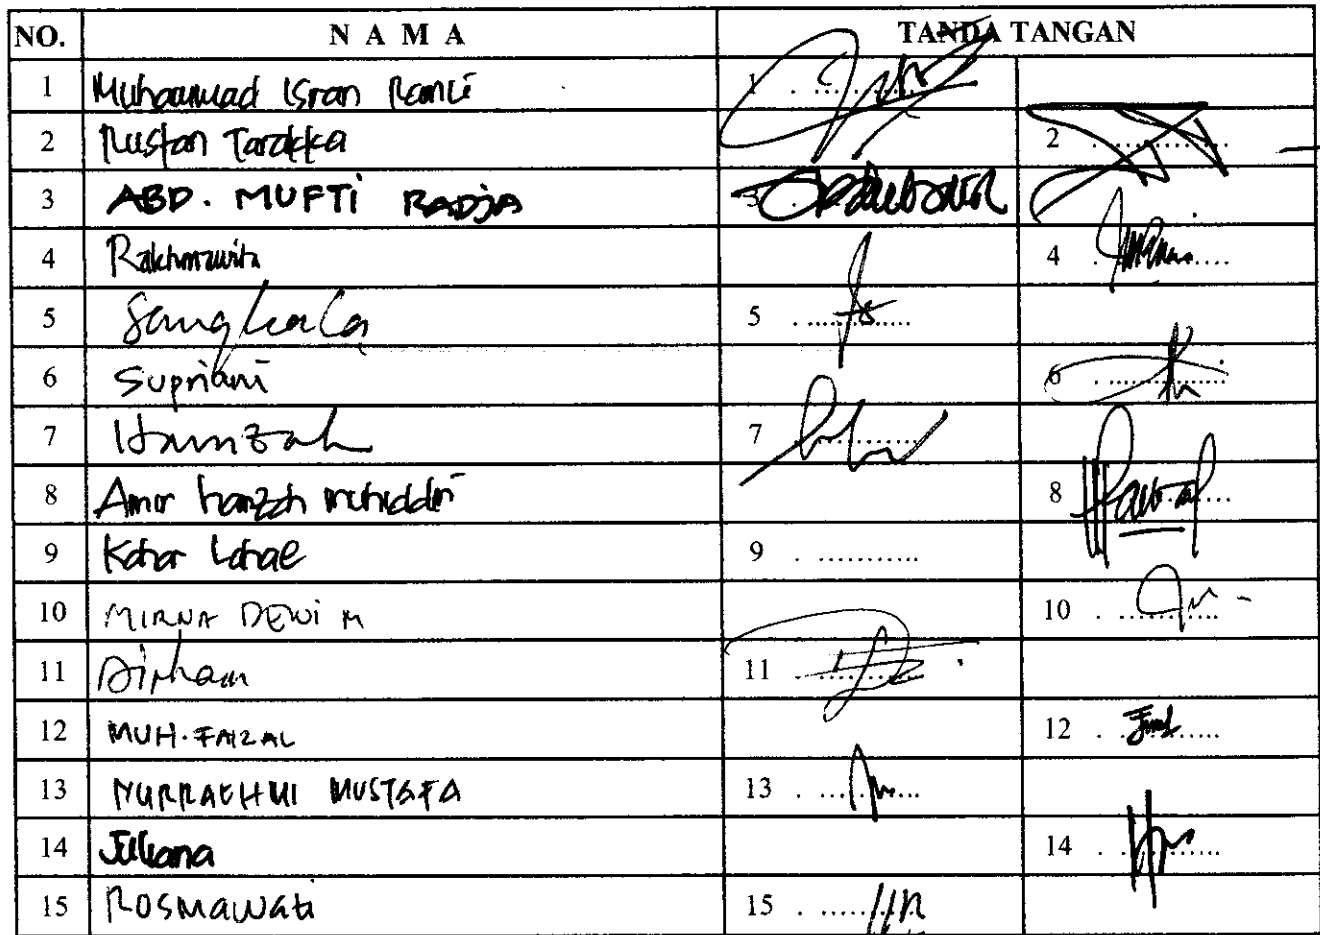 NO. N A M A TANDA TANGAN
1 Muhammad Isran Ramli 1
2 Rustan Tarakka 2
3 ABD. MUFTi RADJA 3
4 Rakhmawita 4
5 Sangkala 5
6 Supriani 6
7 Hamzah 7
8 Amir hamzah muhiddin 8
9 Kahar Lahae 9
10 MIRNA DEWi M 10
11 Dirham 11
12 MUH. FAIZAL 12
13 NURRACHMI MUSTAFA 13
14 Juliana 14
15 Rosmawati 15